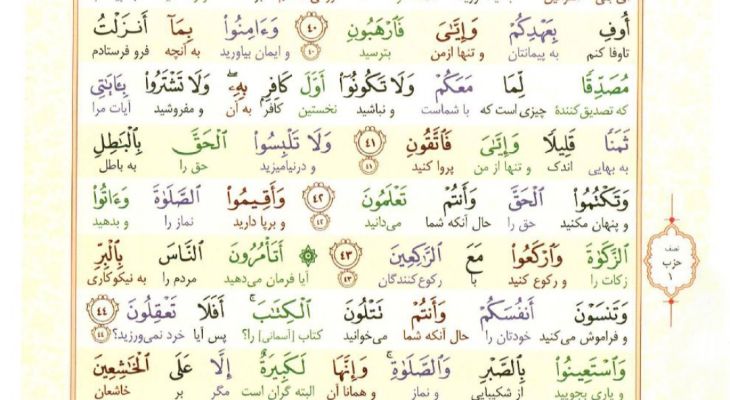 أُوفِ بِعَهْدِكُمْ وَإِيَّٰىَ فَٱرْهَبُونِ ٤٠ وَءَامِنُوا۟ بِمَآ أَنزَلْتُ
تاوفا کنم به پیمانتان و تنها ازمن بترسید ٤٠ و ایمان بیاورید به آنچه فرو فرستادم
مُصَدِّقًا لِّمَا مَعَكُمْ وَلَا تَكُونُوٓا۟ أَوَّلَ كَافِرٍۭ بِهِۦ ۖ وَلَا تَشْتَرُوا۟ بِـَٔايَٰتِى
که تصدیق‌کنندهٔ چیزی است که با شماست و نباشید نخستین کافر به آن و مفروشید آیات مرا
ثَمَنًا قَلِيلًا وَإِيَّٰىَ فَٱتَّقُونِ ٤١ وَلَا تَلْبِسُوا۟ ٱلْحَقَّ بِٱلْبَٰطِلِ
به بهایی اندک و تنها از من پروا کنید ٤١ و درنیامیزید حق را به باطل
وَتَكْتُمُوا۟ ٱلْحَقَّ وَأَنتُمْ تَعْلَمُونَ ٤٢ وَأَقِيمُوا۟ ٱلصَّلَوٰةَ وَءَاتُوا۟
و پنهان مکنید حق را حال آنکه شما می‌دانید ٤٢ و برپا دارید نماز را و بدهید
ٱلزَّكَوٰةَ وَٱرْكَعُوا۟ مَعَ ٱلرَّٰكِعِينَ ٤٣ ۞ أَتَأْمُرُونَ ٱلنَّاسَ بِٱلْبِرِّ
زکات را و رکوع کنید با رکوع‌کنندگان ٤٣ آیا فرمان می‌دهید مردم را به نیکوکاری
وَتَنسَوْنَ أَنفُسَكُمْ وَأَنتُمْ تَتْلُونَ ٱلْكِتَٰبَ ۚ أَفَلَا تَعْقِلُونَ ٤٤
و فراموش می‌کنید خودتان را حال آنکه شما می‌خوانید کتاب [آسمانی] را؟ پس آیا خرد نمی‌ورزید؟ ٤٤
وَٱسْتَعِينُوا۟ بِٱلصَّبْرِ وَٱلصَّلَوٰةِ ۚ وَإِنَّهَا لَكَبِيرَةٌ إِلَّا عَلَى ٱلْخَٰشِعِينَ
و یاری بجویید از شکیبایی و نماز و همانا آن البته گران است مگر بر خاشعان
نصف
حزب
١